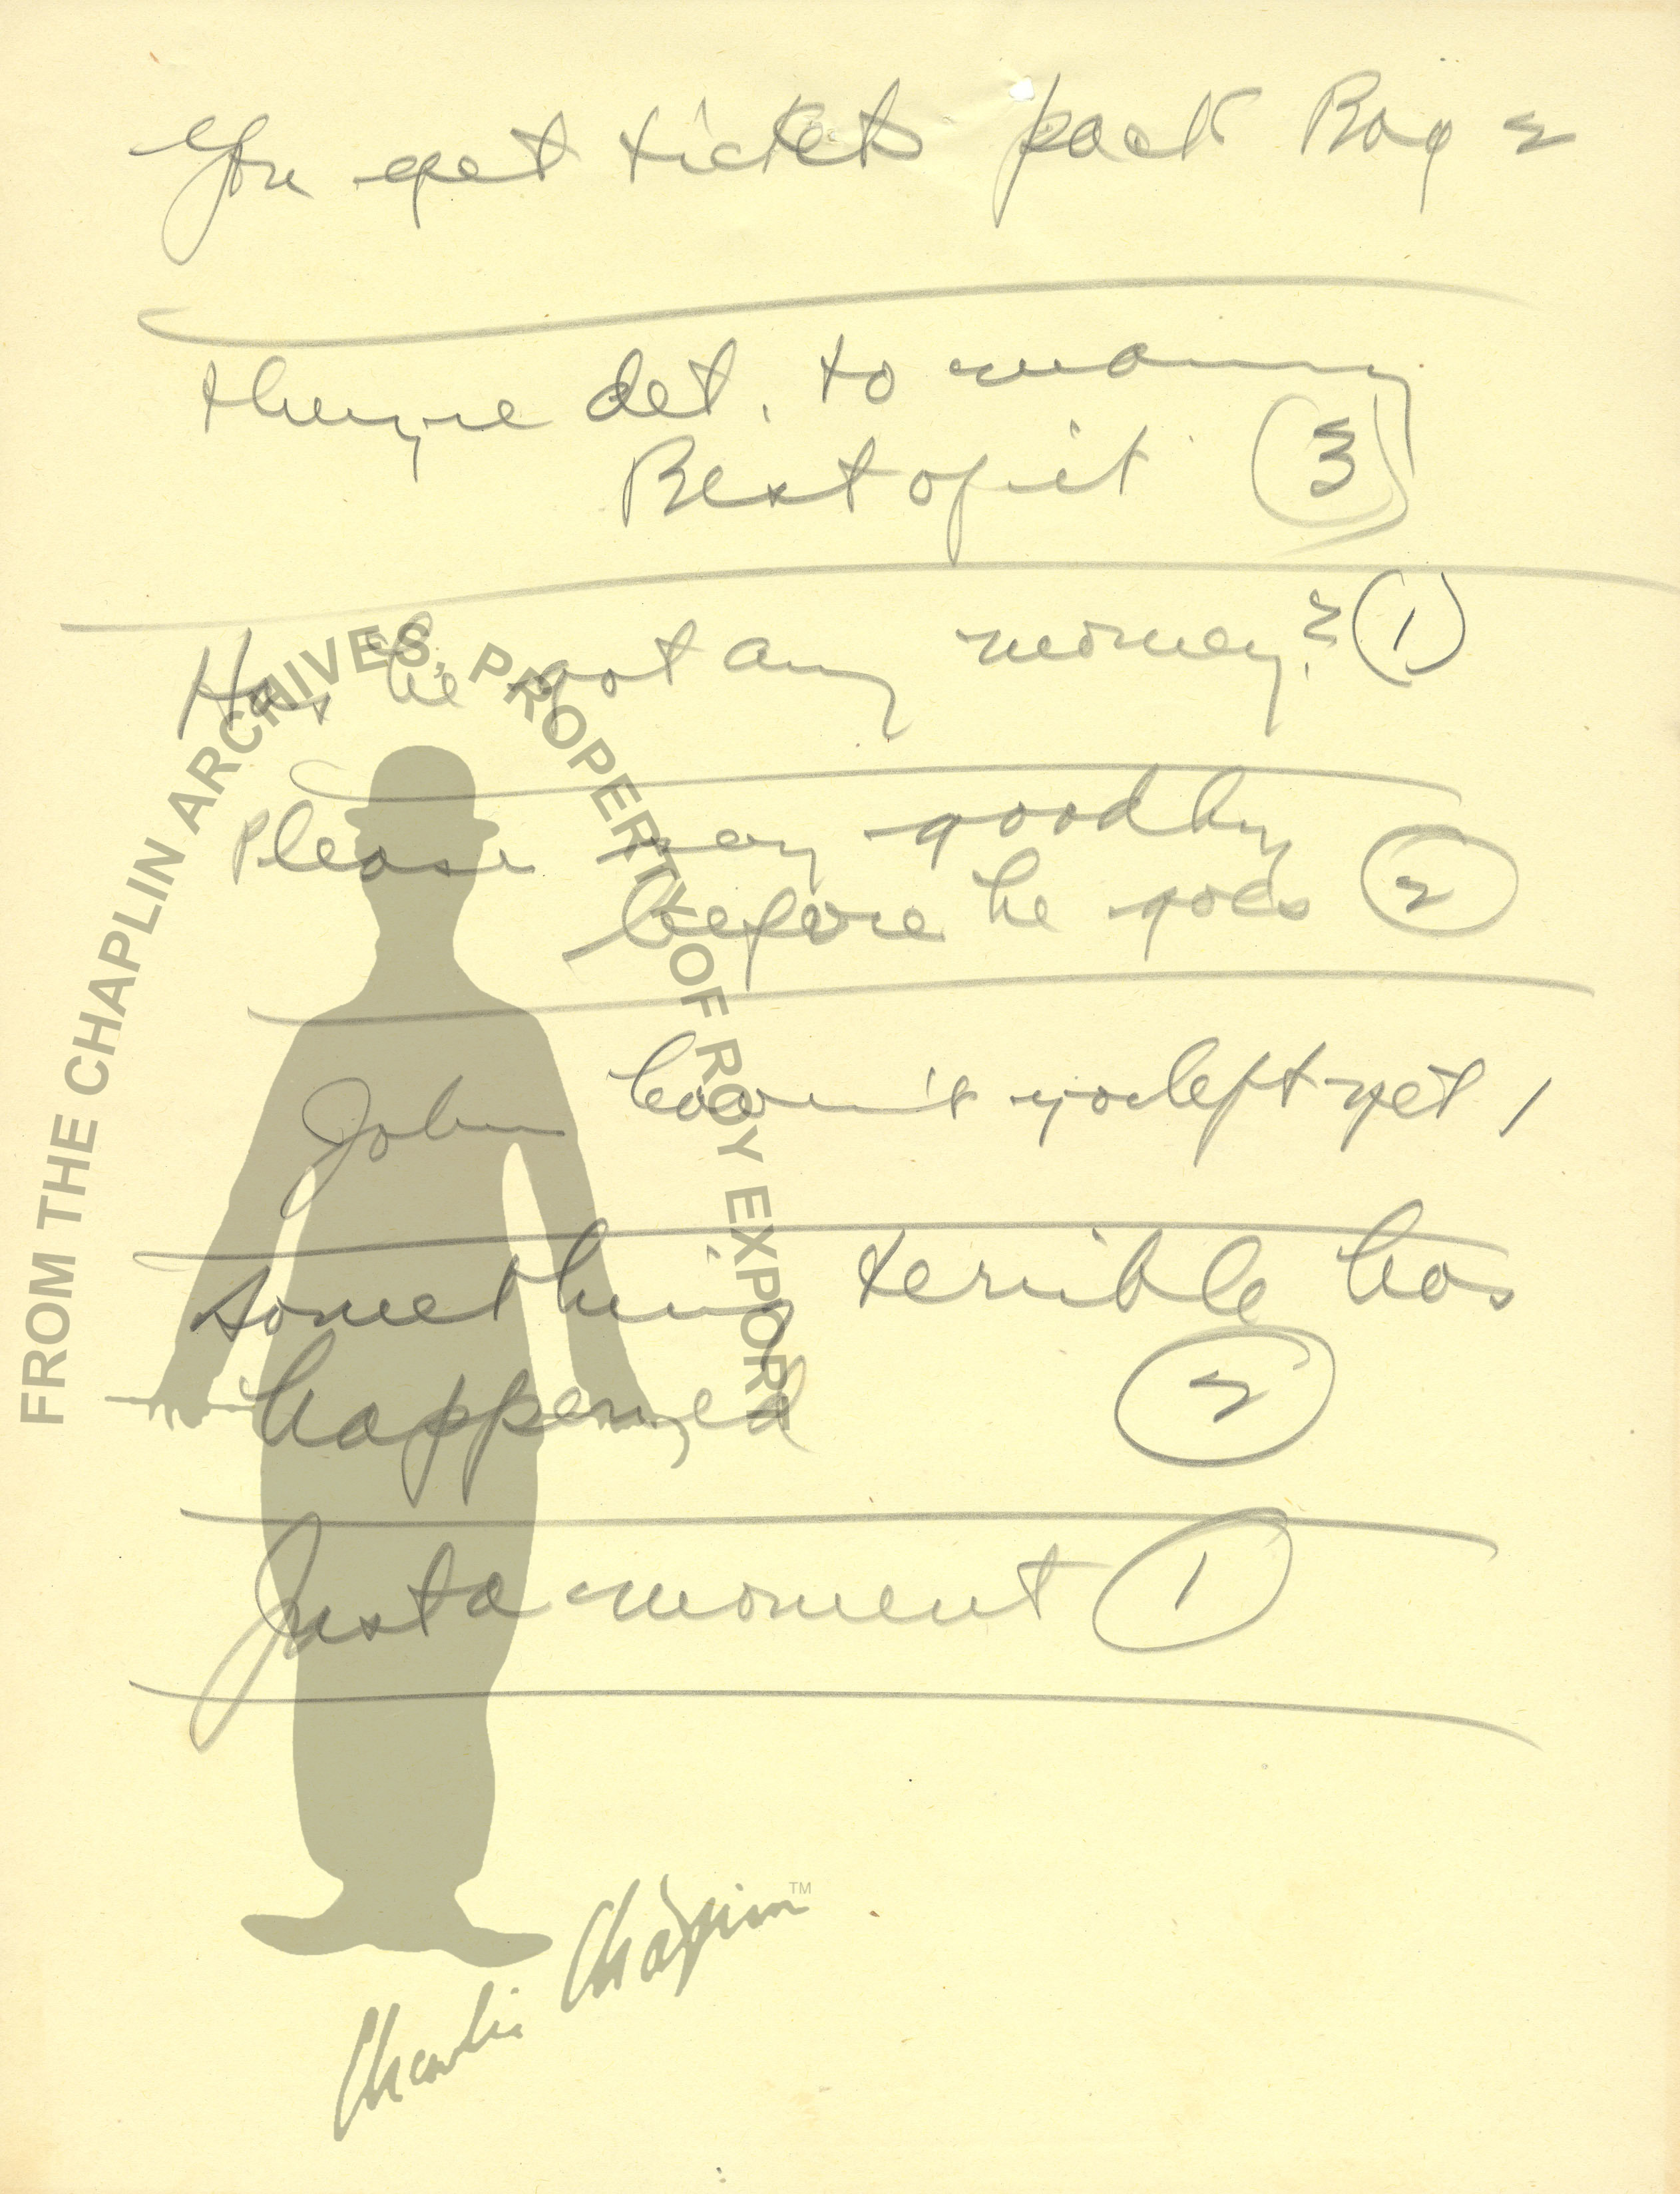 You get tickets pack Bag 2
they're det. to marry
Best of it 3
Has he got any money? 1
Please say goodby
before he goes 2
John haven't you left yet 1
something terrible has
happened 2
Just a moment 1
FROM THE CHAPLIN ARCHIVES, PROPERTY OF ROY EXPORT
Charlie Chaplin™